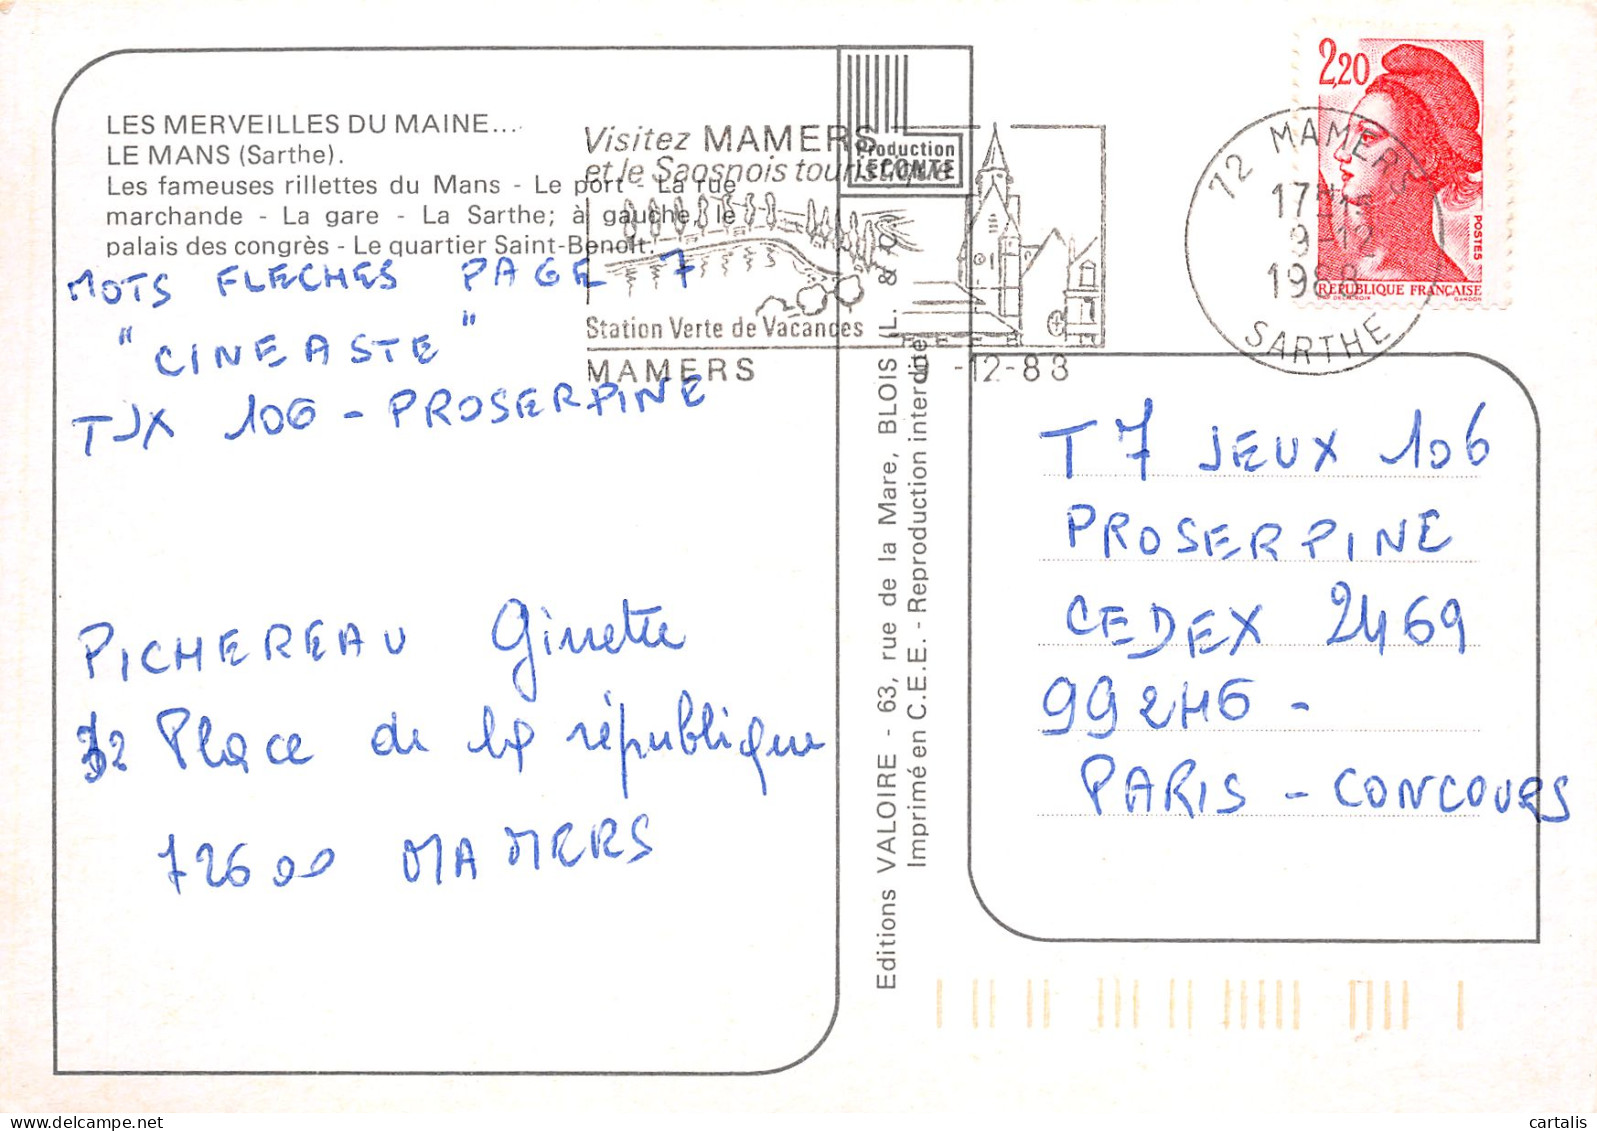 LES MERVEILLES DU MAINE...
LE MANS (Sarthe).
Les fameuses rillettes du Mans - Le port - La rue
marchande - La gare - La Sarthe; à gauche, le
palais des congrès - Le quartier Saint-Benoît.
MOTS FLECHES PAGE 7
"CINEASTE"
TJX 106 - PROSERPINE
PICHEREAU Ginette
32 Place de la république
72600 MAMERS
Visitez MAMERS
et le Saosnois touristique
Station Verte de Vacances
MAMERS
9-12-88
Production
LECONTE
Editions VALOIRE - 63, rue de la Mare, BLOIS (L. & C.)
Imprimé en C.E.E. - Reproduction interdite
2,20
POSTES
RÉPUBLIQUE FRANÇAISE
72 MAMERS
17H15
9-12
1988
SARTHE
T 7 JEUX 106
PROSERPINE
CEDEX 2469
99 2H6 -
PARIS - CONCOURS
cartalis